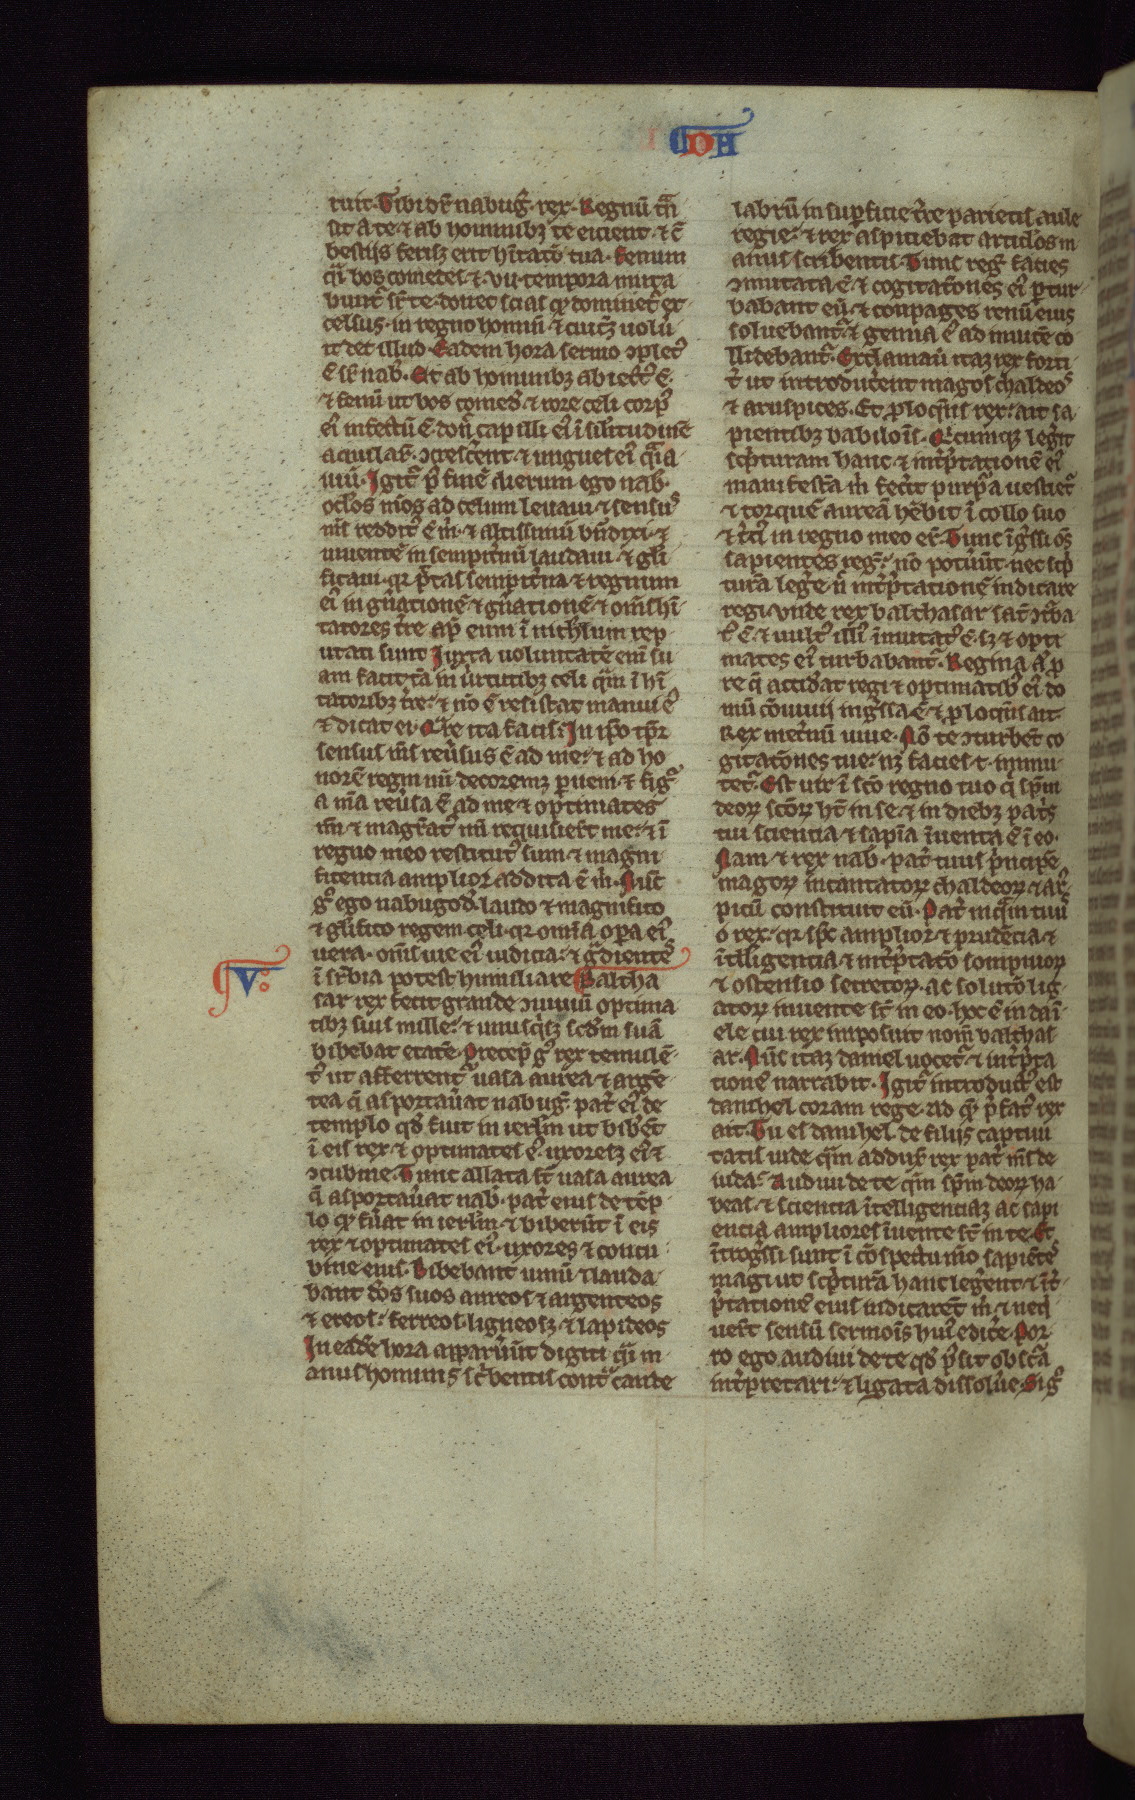 DH
ruit. Tibi dr̄ nabug̃. rex. Regnū tuū
sit a te. ⁊ ab hominibꝫ te eicient. ⁊ c̄
bestijs ferisꝫ erit hītatō tua. Fenum
q̄ bos comedes. ⁊ .vii. tempora muta
bunt̃ sr̄ te. donec scias qꝫ dominet̃ ex
celsus. in regno hominū. ⁊ cuicūꝫ uolu
it̃ det illud. Eadem hora sermo ↄplet᷒
ē sr̄ nab̃. Et ab hominibꝫ abiect᷒ ē.
⁊ fenū ut bos comed̃. ⁊ rore celi corp᷒
ei᷒ infectū ē. donc̃ capilli ei᷒ ī sil̃itudinē
aquilar̃. ↄcresc̃ent. ⁊ ungues ei᷒ q̃i a
uiū. Igit̃ p᷒ finē dierum ego nab̃.
oc̃los meos ad celum leuaui. ⁊ sensus
m̃s reddit᷒ ē m̃. ⁊ altissimū bñdixi. ⁊
uiuentē in sempit̃nū laudaui. ⁊ gl̃i
ficaui. qr p̃tas sempit̃na ⁊ regnum
ei᷒ in gñationē ⁊ gñationē. ⁊ om̃s hī
tatores t̃re apᷣ eum ī nichilum rep
utati sunt Iuxta voluntatē em̃ su
am facit tā in uirtutibꝫ celi q̃m ī hī
tatoribꝫ t̃re. ⁊ nō ē resistat manui ei᷒
⁊ dicat ei. Qr̃e ita facis. In ip̃o tp̃r
sensus m̃s reũsus ē ad me. ⁊ ad ho
norē regni mī decoremꝫ pueni. ⁊ fig᷒
a m̃a reũsa ē ad me ⁊ optimates
m̃i ⁊ magr̃at᷒ m̃i requisier̃t me. ⁊ ī
regno meo restitut᷒ sum. ⁊ magni
ficentia amplior addita ē m̃. Nūc
g᷒ ego nabugod̃. laudo ⁊ magnifico
⁊ gl̃ifico regem celi. qr omīa opa ei᷒
uera. om̃s uie ei᷒ iudicia. ⁊ g̃dientes
ī sr̃bia potest humiliare Baltha
V
sar rex fecit grande ↄuiuiū optima
tibꝫ suis mille. ⁊ unusq̃sꝫ scd̃m suā
bibebat etatē. Precep̃ g᷒ rex temulē
t᷒ ut afferrent᷒ uasa aurea ⁊ argē
tea q̄ asportaũat nabug̃. pat̃ ei᷒ de
templo qd̃ fuit in ierl̃m ut bibēt
ī eis rex ⁊ optimates ei᷒. uxoresꝫ ei᷒ ⁊
ↄcubine. Tunc allata st̃ uasa aurea
q̄ asportaũat nab̃. pat̃ eius de tēp
lo qꝫ fũat in ierl̃m ⁊ biberūt ī eis
rex ⁊ optimates ei᷒. uxores ⁊ concu
bine eius. Bibebant uinū ⁊ lauda
bant dõs suos aureos ⁊ argenteos
⁊ ereos. ferreos. ligneosꝫ ⁊ lapideos
In eadē hora apparũunt digiti q̃i m
anus hominis sc̃bentis cont᷒ cande
labrū in supficie t̃re parietis aule
regie. ⁊ rex aspiciebat articl̃os m
anus scribentis. Tunc reg̃ facies
ↄmutata ē. ⁊ cogitatōnes ei᷒ ptur
babant eū. ⁊ conpages renū eius
soluebant᷒. ⁊ genua ē ad inuicē co
llidebant᷒. Exclamauit itaꝫ rex forti
t̃ ut introduc̃ent magos chaldeos
⁊ aruspices. Et ploq̃ns rex ait sa
pientibꝫ babilonīs. Qicumqꝫ leg̃it
scp̃turam hanc. ⁊ int̃ptationē ei᷒
manifestā m̃ fec̃it purp̃a uestiet᷒
⁊ torquē aureā hēbit ī collo suo
⁊ t̃ci᷒ in regno meo er̃. Tunc īg̃ssi os̃
sapientes reg̃. nō potuūt nec scp̃
turā leg̃e. n̄ int̃ptationē indicare
regi. vnde rex balthasar sat ↄt̃ba
t᷒ ē. ⁊ uult᷒ illi᷒ īmutat᷒ ē. sꝫ ⁊ opti
mates ei᷒ turbabant᷒. Regina aᷣ p
re q̄ accid̃at regi ⁊ optimatibꝫ ei᷒. do
mū cōuiuij ing̃ssa ē. ⁊ ploq̃ns ait.
Rex inet̃nū uiue. Nō te ↄturbēt co
gitatōnes tue. nꝫ facies t. inmu
tet᷒. Est uir ī scō regno tuo q̄ sp̃m
deorꝝ scōrꝝ ht̃ in se. ⁊ in diebꝫ pat̃s
tui scientia ⁊ sapīa īuenta ē ī eo.
Nam ⁊ rex nab̃. pat̃ tuus p̃ncipē
magorꝝ incantatorꝝ chaldeorꝝ ⁊ ar᷒
picū constituit eū. Pat̃ inq̃m tuus
o rex. qr sp̃c amplior ⁊ prudēcia ⁊
īt̃lligentia ⁊ int̃ptatō sompniorꝝ
⁊ ostensio secretorꝝ. ac solutō lig
atorꝝ inuente st̃ in eo. hoc ē in dañi
ele cui rex imposuit nom̃ balthas
ar. Nūc itaꝫ daniel uocet᷒. ⁊ int̃pta
tionē narrabit. Igit̃ introduct᷒ est
danihel coram rege. ad qꝫ p̃fat᷒ rex
ait. Tu es danihel. de filijs captiui
tatis iude q̃m addux̃ rex pat̃ m̃s de
iuda. Audiui de te q̃m sp̃m deorꝝ ha
beas. ⁊ scientia īt̃elligenciaꝫ ac sapi
encia ampliores īuente st̃ in te. Et
īt̃og̃ssi sunt ī cōspectu meo sapiētes
magi ut scp̃turā hanc leg̃ent. ⁊ īt̃
p̃tationē eius indicarēt m̃. ⁊ neq̃
uer̃t sensū sermoīs hui᷒ edic̃e. Por
ro ego audiui de te qd̃ p̃sit obsc̃a
int̃pretari. ⁊ ligata dissolũe. Sig᷒